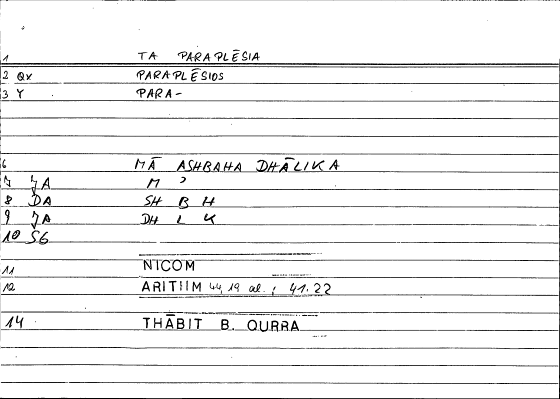 1 TA PARAPLĒSIA
2 Qx PARAPLĒSIOS
3 Y PARA-
6 MĀ ASHBAHA DHĀLIKA
7 JA M ʾ
8 DA SH B H
9 JA DH L K
10 S6
11 NICOM
12 ARITIIM 44,19 al.; 41.22
14 THĀBIT B. QURRA